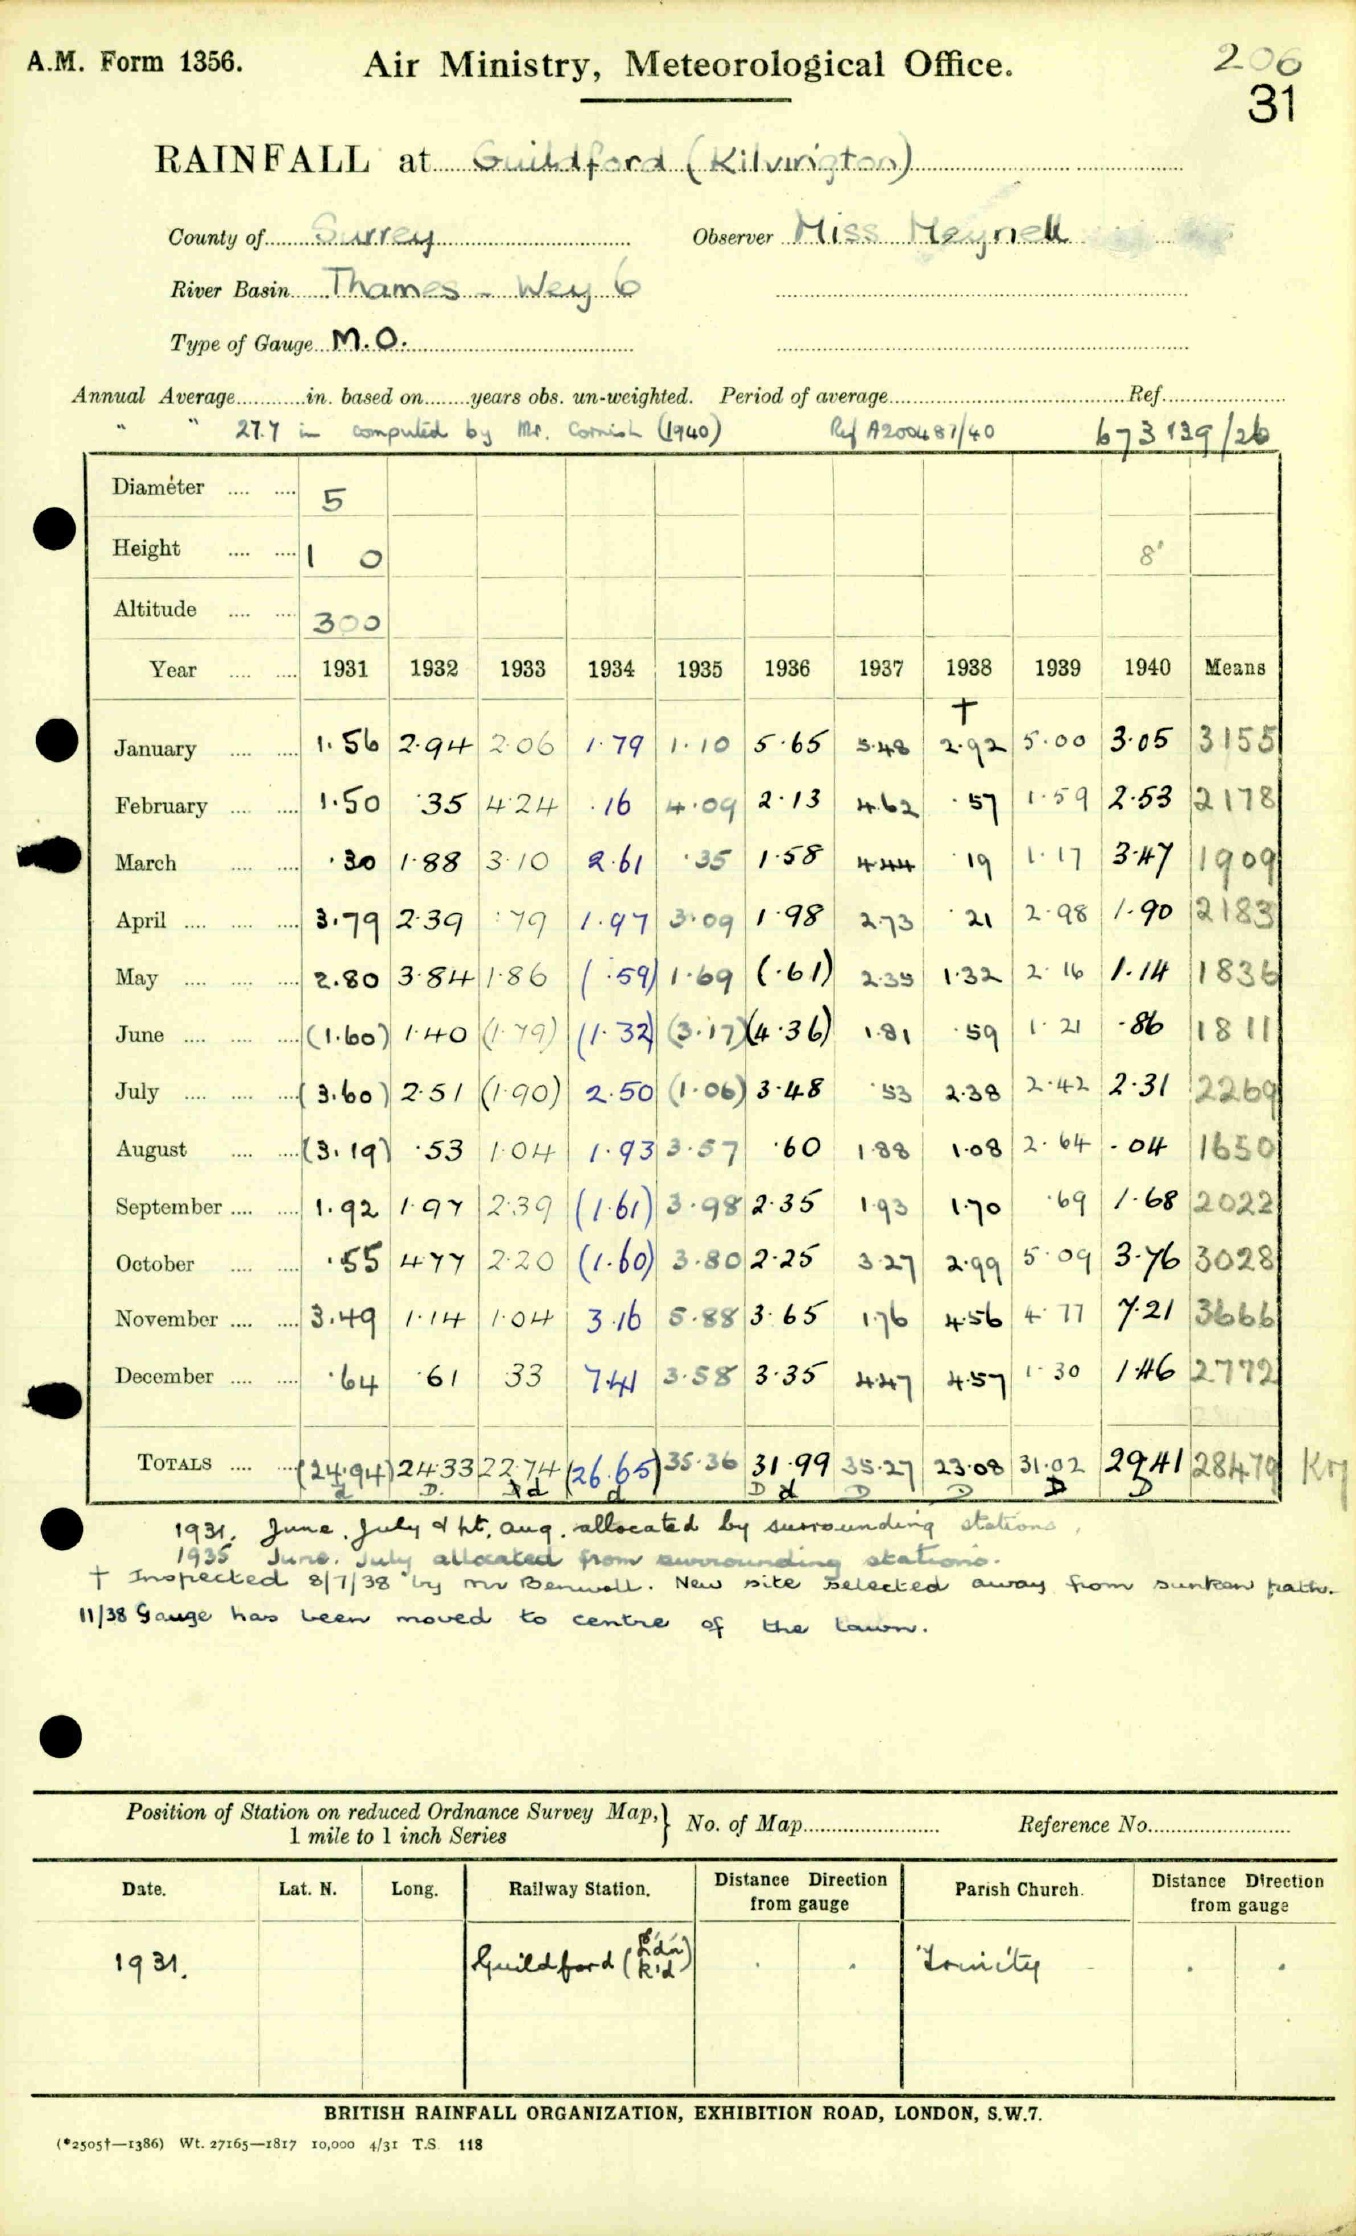 A.M. Form 1356.
Air Ministry, Meteorological Office.
206
31
RAINFALL at Guildford (Kilvington)
County of Surrey Observer Miss Meynell
River Basin Thames - Wey 6
Type of Gauge M.O.
Annual Average in. based on years obs. un-weighted. Period of average Ref.
" " 27.7 in computed by Mr. Cornish (1940) Ref A200481/40 673139/26
Diameter 5
Height 1 0 8'
Altitude 300
Year 1931 1932 1933 1934 1935 1936 1937 1938 1939 1940 Means
†
January 1.56 2.94 2.06 1.79 1.10 5.65 5.48 2.92 5.00 3.05 3155
February 1.50 .35 4.24 .16 4.09 2.13 4.62 .57 1.59 2.53 2178
March .30 1.88 3.10 2.61 .35 1.58 4.44 .19 1.17 3.47 1909
April 3.79 2.39 .79 1.97 3.09 1.98 2.73 .21 2.98 1.90 2183
May 2.80 3.84 1.86 (.59) 1.69 (.61) 2.35 1.32 2.16 1.14 1836
June (1.60) 1.40 (1.79) (1.32) (3.17) (4.36) 1.81 .59 1.21 .86 1811
July (3.60) 2.51 (1.90) 2.50 (1.06) 3.48 .53 2.38 2.42 2.31 2269
August (3.19) .53 1.04 1.93 3.57 .60 1.88 1.08 2.64 .04 1650
September 1.92 1.97 2.39 (1.61) 3.98 2.35 1.93 1.70 .69 1.68 2022
October .55 4.77 2.20 (1.60) 3.80 2.25 3.27 2.99 5.09 3.76 3028
November 3.49 1.14 1.04 3.16 5.88 3.65 1.76 4.56 4.77 7.21 3666
December .64 .61 33 7.41 3.58 3.35 4.47 4.57 1.30 1.46 2772
TOTALS (24.94) 24.33 22.74 (26.65) 35.36 31.99 35.27 23.08 31.02 29.41 28479
d D. d d D d D D D D
1931. June, July & pt. Aug. allocated by surrounding stations.
1935 June, July allocated from surrounding stations.
† Inspected 8/7/38 by Mr Benwell. New site selected away from sunken path.
11/38 Gauge has been moved to centre of the lawn.
Position of Station on reduced Ordnance Survey Map, } No. of Map Reference No.
1 mile to 1 inch Series
Date. Lat. N. Long. Railway Station. Distance Direction from gauge Parish Church. Distance Direction from gauge
1931. Guildford Trinity
BRITISH RAINFALL ORGANIZATION, EXHIBITION ROAD, LONDON, S.W.7.
(*2505†—1386) Wt. 27165—1817 10,000 4/31 T.S. 118